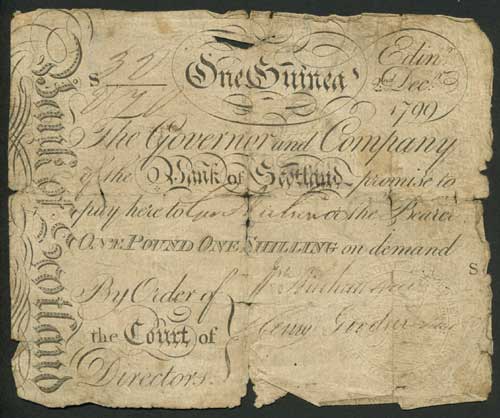 Bank of Scotland
One Guinea
Edinr.
Decr.
1799
The Governor and Company
of the Bank of Scotland promise to
pay here to or the Bearer
ONE POUND ONE SHILLING on demand
S
By Order of
the Court of
Directors.